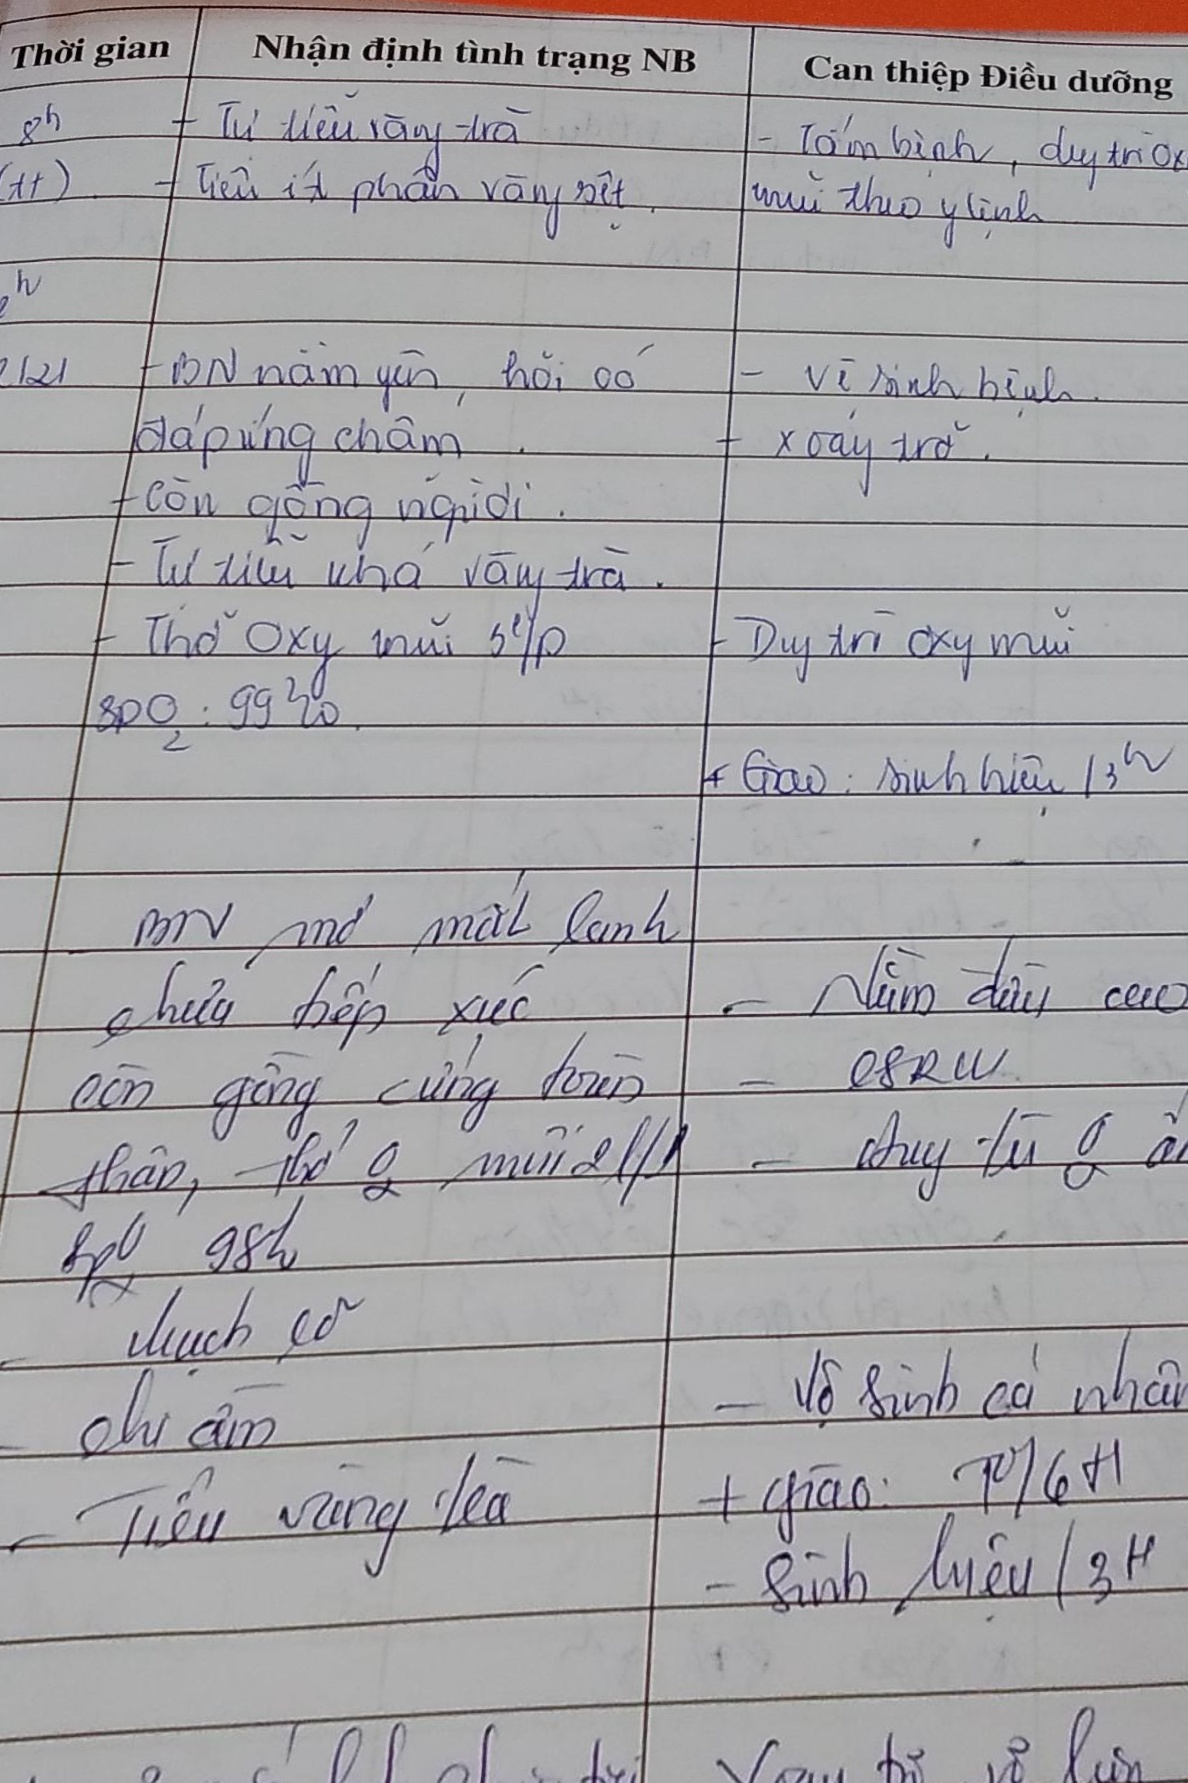 Thời gian Nhận định tình trạng NB Can thiệp Điều dưỡng
8h + Tự tiểu vàng trà - Tắm bệnh, duy trì ox
(tt) - Tiêu ít phân vàng sệt. mũi theo y lệnh
h
/21 - BN nằm yên, hỏi có - Vệ sinh bệnh.
đáp ứng chậm. + xoay trở.
+ Còn gồng người.
- Tự tiểu khá vàng trà.
- Thở Oxy mũi 3l/p - Duy trì oxy mũi
SPO2: 99%.
+ Giao: sinh hiệu /3h
BN mở mắt lanh
chưa tiếp xúc - Nằm đầu cao
còn gồng cứng toàn - CSRL
thân, thở O2 mũi 2l/p - duy trì O2 ẩ
SpO2 98%
- Mạch rõ
- Vệ sinh cá nhân
- chi ấm
+ giao: T°/6H
- Tiểu vàng trà
- Sinh hiệu /3H